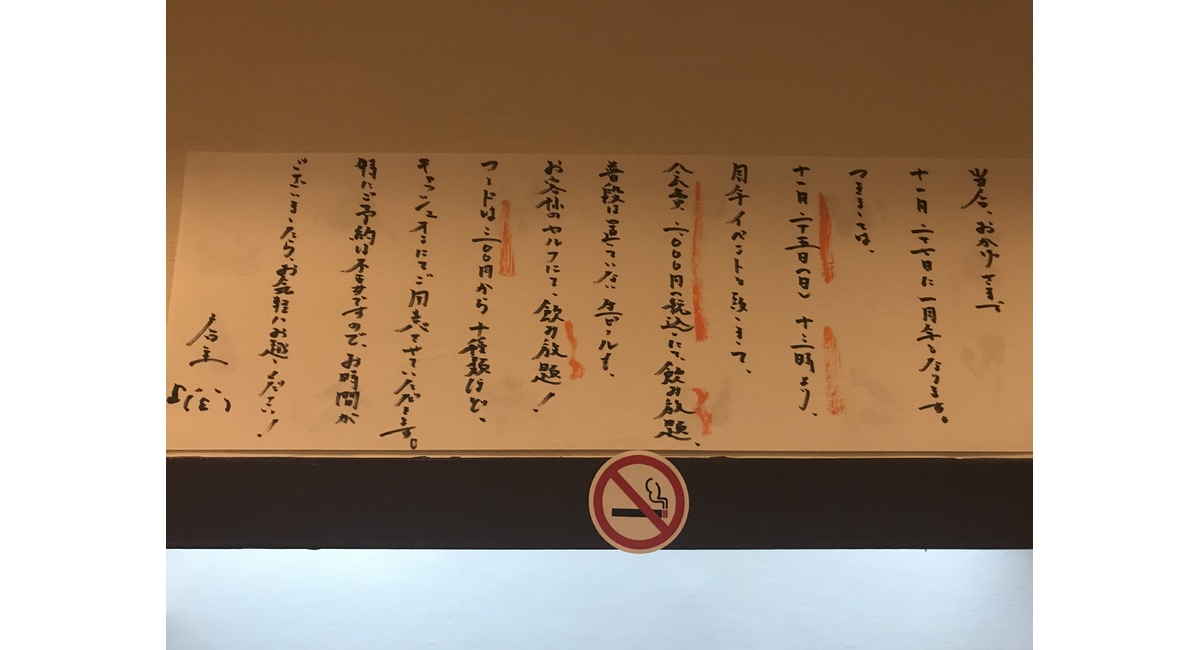 当店、おかげさまで
十一月二十七日に一周年となります。
つきましては、
十一月二十五日(日)十三時より、
周年イベントと致しまして、
会費二〇〇〇円(税込)にて、飲み放題、
普段は置いていない生ビールも、
お客様のセルフにて、飲み放題!
フードは三〇〇円から十種類ほど、
キャッシュオンにてご用意させていただきます。
特にご予約は不要ですので、お時間が
ございましたら、お気軽にお越しください!
店主